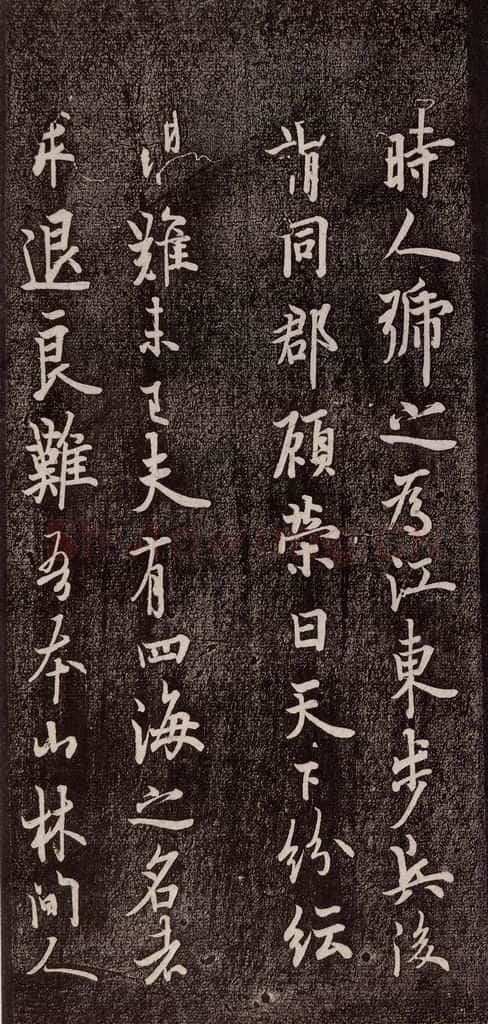 時人號之為江東步兵後
謂同郡顧榮曰天下紛紜
禍難未已夫有四海之名者
求退良難吾本山林間人
shufawang.cn